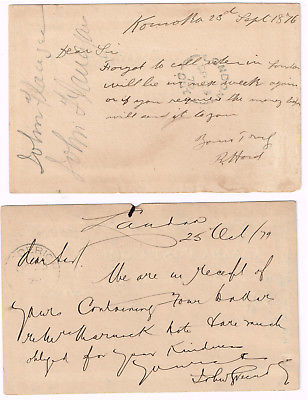 Komoka 23rd Sept 1876
Dear Sir
Forgot to call when in London
will be in next week again
or if you require the money
will send it to you
Yours Truly
R Hord
John
John
London
25 Oct /79
Dear Sir.
We are in receipt of
yours containing Four Dollar
re Mr Warnick Note & are much
obliged for your kindness
Yours
John Green